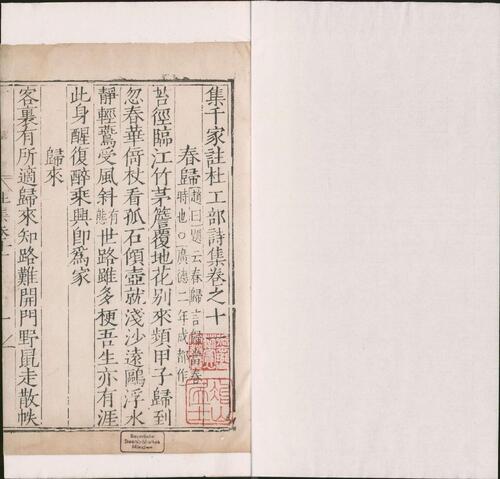 集千家註杜工部詩集卷之十
春歸趙曰題云春歸言歸當春時也○廣德二年成都作
苔徑臨江竹茅簷覆地花别來頻甲子歸到
忽春華倚杖看孤石傾壺就淺沙遠鷗浮水
靜輕鷰受風斜有態世路雖多梗吾生亦有涯
此身醒復醉乘興即爲家
歸來
客裏有所適歸來知路難開門野鼠走散帙
Bayerische
Staatsbibliothek
München